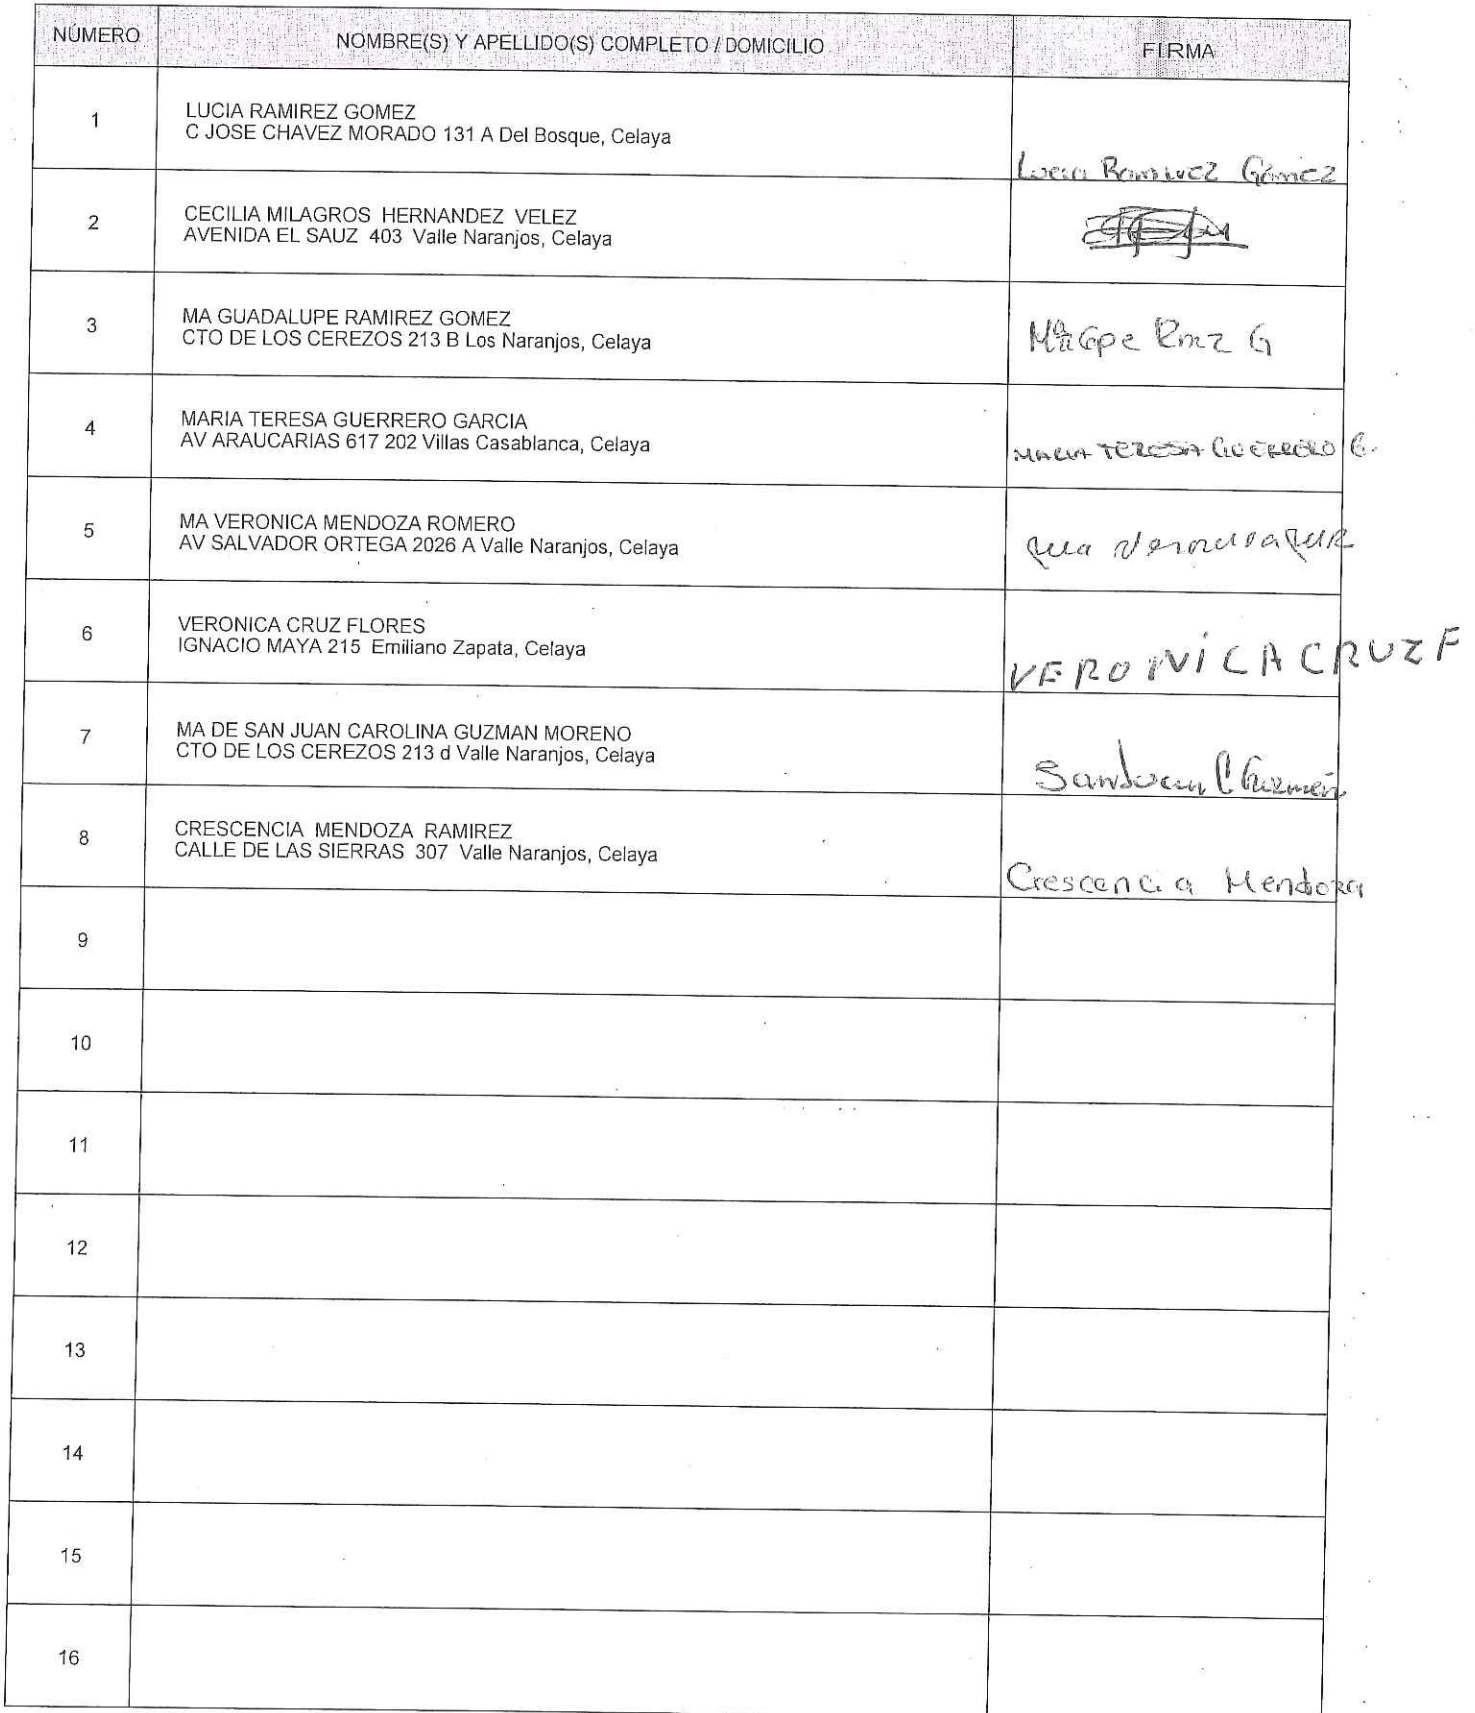 NÚMERO NOMBRE(S) Y APELLIDO(S) COMPLETO / DOMICILIO FIRMA
1
LUCIA RAMIREZ GOMEZ
C JOSE CHAVEZ MORADO 131 A Del Bosque, Celaya
Lucia Ramirez Gómez
2
CECILIA MILAGROS HERNANDEZ VELEZ
AVENIDA EL SAUZ 403 Valle Naranjos, Celaya
3
MA GUADALUPE RAMIREZ GOMEZ
CTO DE LOS CEREZOS 213 B Los Naranjos, Celaya
Mª Gpe Rmz G
4
MARIA TERESA GUERRERO GARCIA
AV ARAUCARIAS 617 202 Villas Casablanca, Celaya
MARIA TERESA GUERRERO G.
5
MA VERONICA MENDOZA ROMERO
AV SALVADOR ORTEGA 2026 A Valle Naranjos, Celaya
6
VERONICA CRUZ FLORES
IGNACIO MAYA 215 Emiliano Zapata, Celaya
VERONICA CRUZ F
7
MA DE SAN JUAN CAROLINA GUZMAN MORENO
CTO DE LOS CEREZOS 213 d Valle Naranjos, Celaya
SanJuan C Guzmán
8
CRESCENCIA MENDOZA RAMIREZ
CALLE DE LAS SIERRAS 307 Valle Naranjos, Celaya
Crescencia Mendoza
9
10
11
12
13
14
15
16